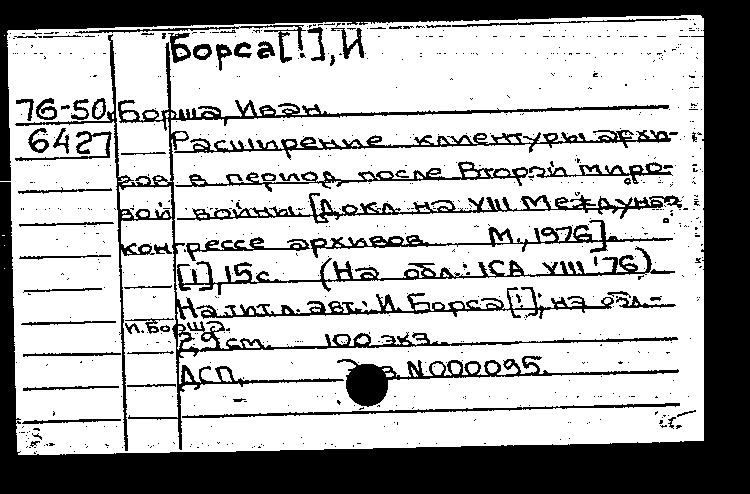 Борса[!], И
76-50. Борша, Иван.
6427 Расширение клиентуры архи-
вов в период после Второй миро-
вой войны. [Докл. на VIII Междунар.
конгрессе архивов. М., 1976].
[1], 15 с. (На обл.: ICA VIII '76).
На тит. л. авт.: И. Борса[!]; на обл.-
И. Борша.
29 cm. 100 экз.
ДСП. N000095.